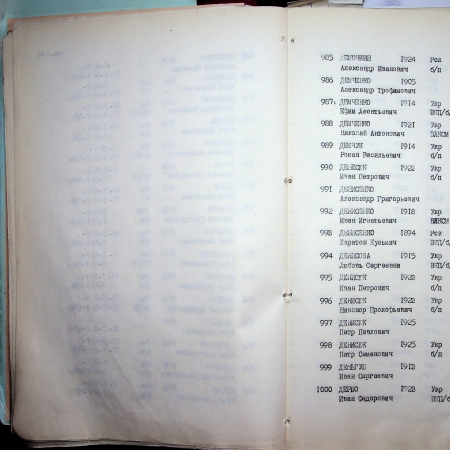 985 ДЕМОЧКИН 1924 Рос
Александр Иванович б/п
986 ДЕМЧЕНКО 1905
Александр Трофимович
987 ДЕМЧЕНКО 1914 Укр
Ефим Леонтьевич ВКП/б
988 ДЕМЧЕНКО 1921 Укр
Николай Антонович ВЛКСМ
989 ДЕМЧУК 1914 Укр
Роман Васильевич б/п
990 ДЕНИСЮК 1923 Укр
Иван Петрович б/п
991 ДЕНИСЕНКО
Александр Григорьевич
992 ДЕНИСЕНКО 1918 Укр
Иван Игнатьевич ВЛКСМ
993 ДЕНИСЕНКО 1894 Рос
Харитон Кузьмич ВКП/б
994 ДЕНИСОВА 1915 Укр
Любовь Сергеевна ВКП/б
995 ДЕНИСЮК 1923 Укр
Иван Петрович б/п
996 ДЕНИСЮК 1923 Укр
Никонор Прокофьевич б/п
997 ДЕНИСЮК 1925
Петр Павлович
998 ДЕНИСЮК 1925 Укр
Петр Семенович б/п
999 1913 Укр
Иван Сергеевич б/п
1000 ДЕРБО 1923 Укр
Иван Федорович ВКП/б